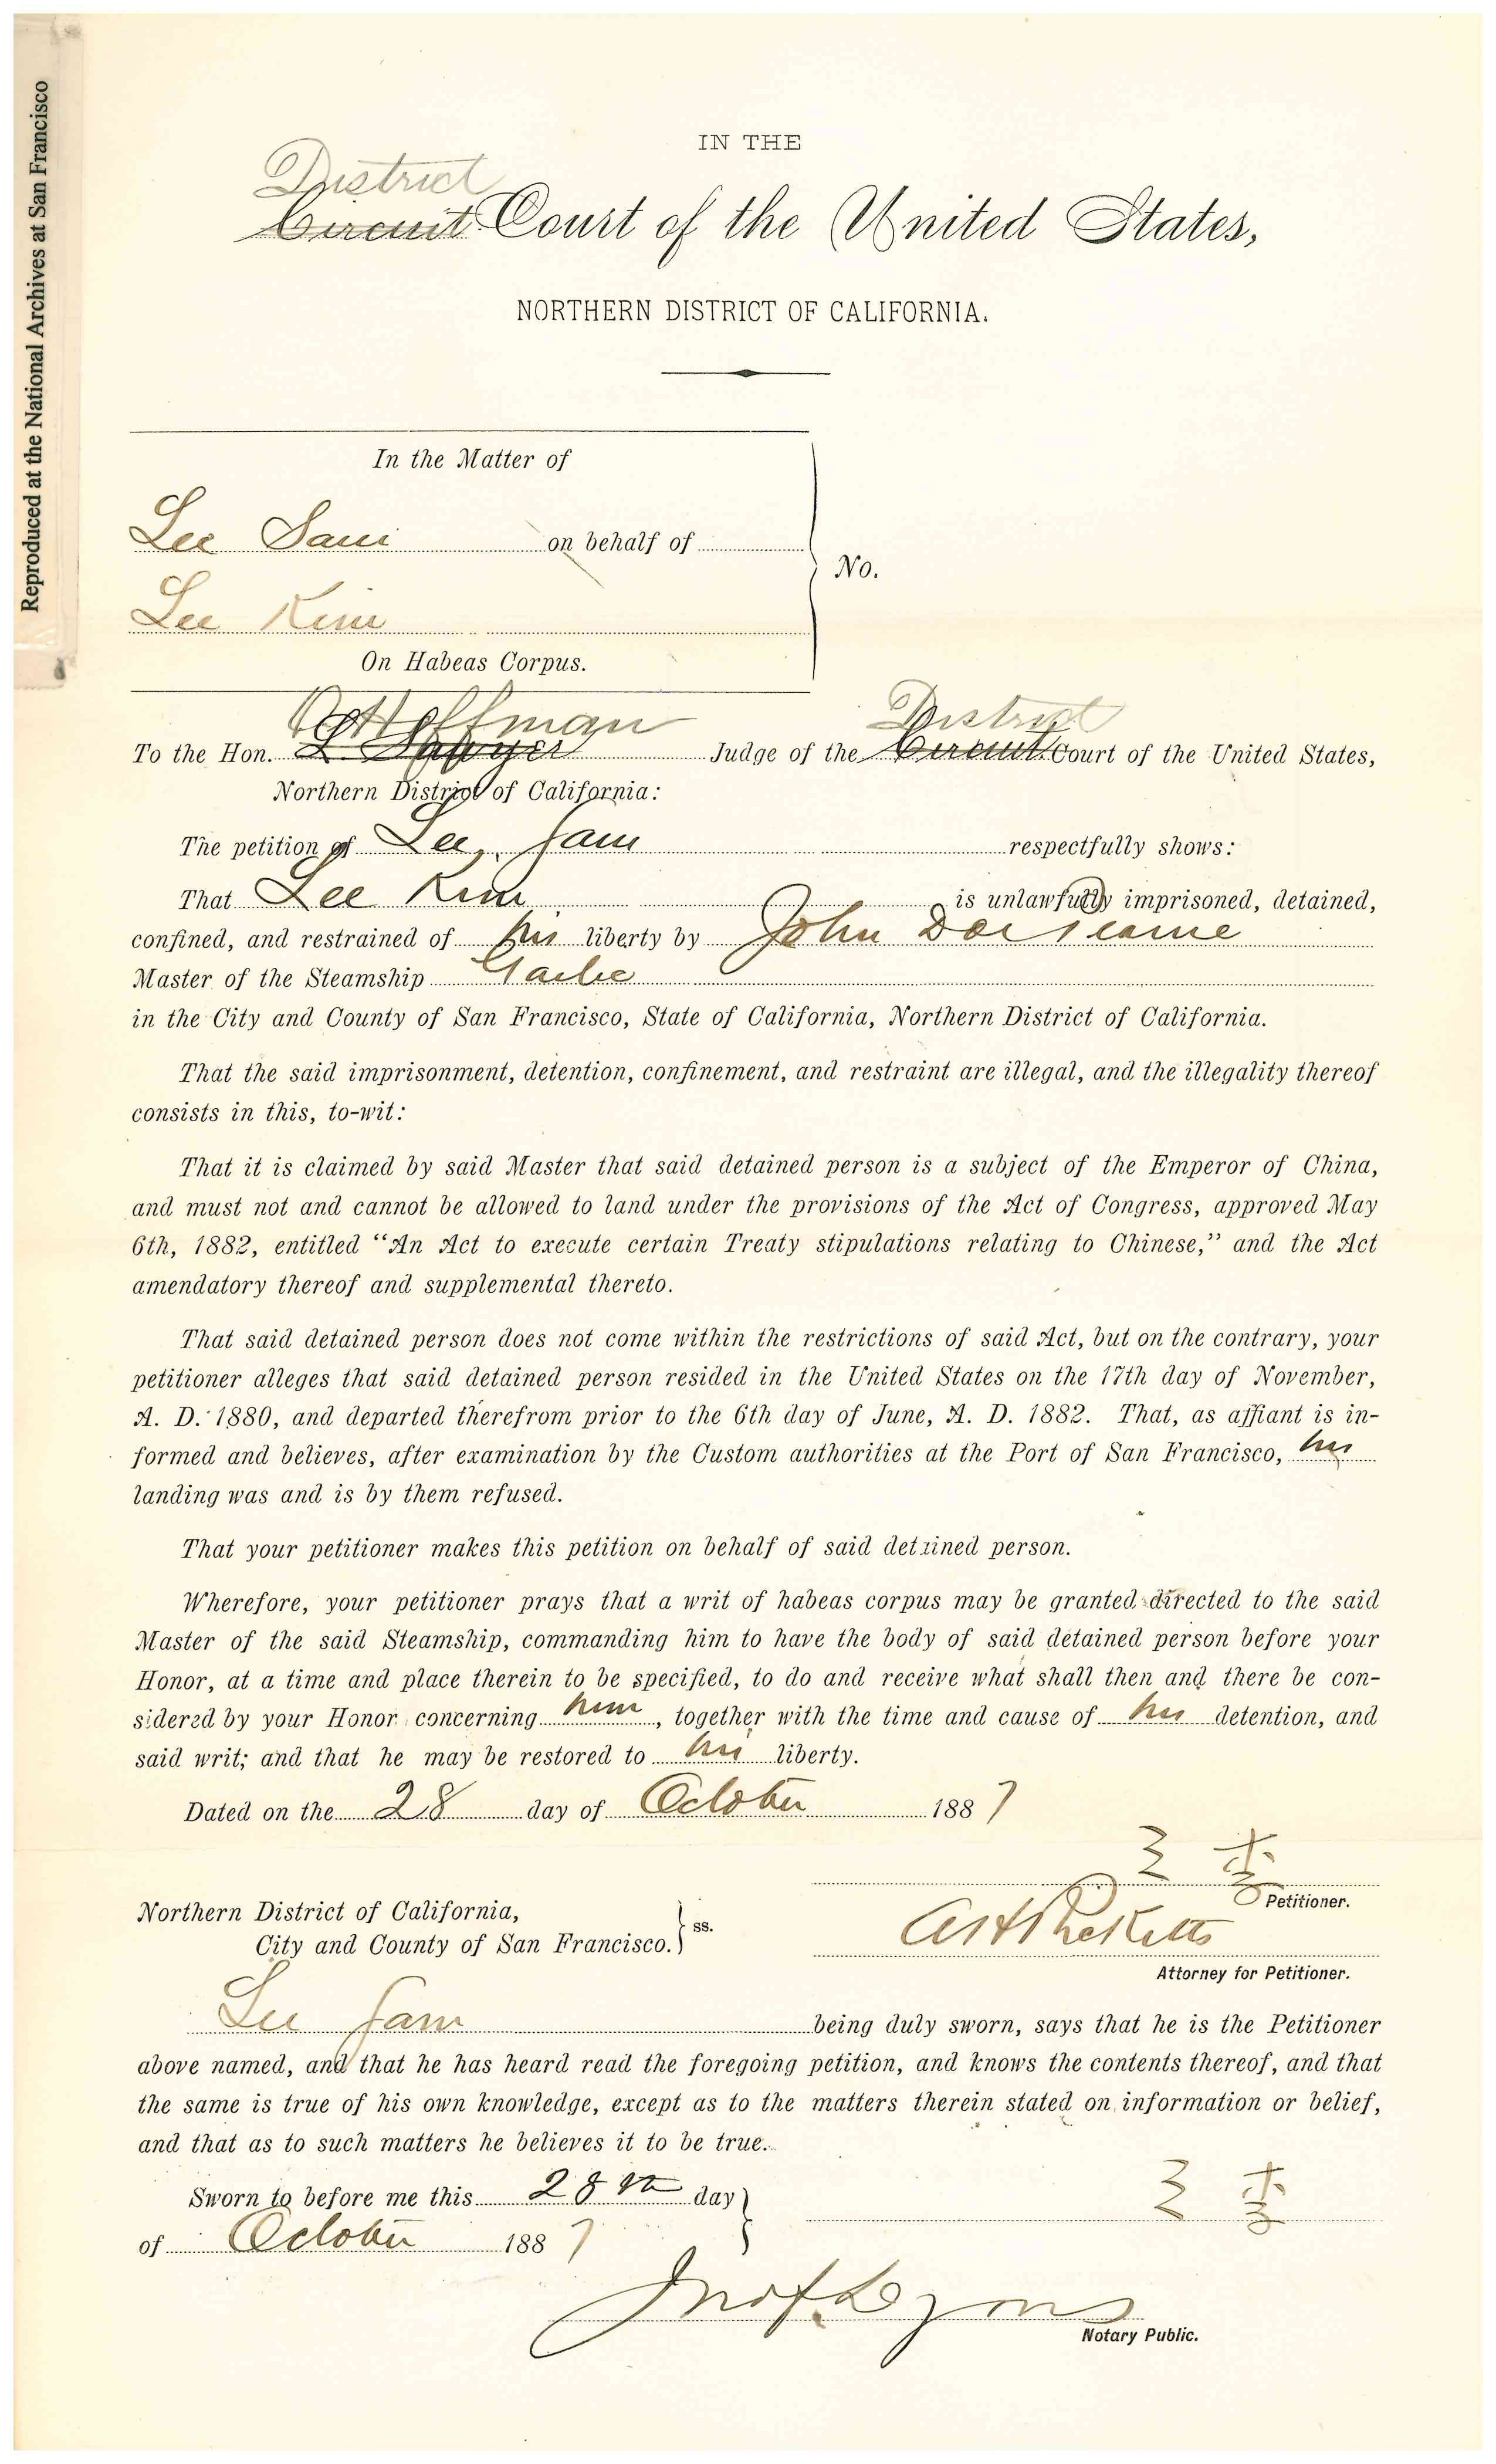 Reproduced at the National Archives at San Francisco
IN THE
District
Circuit Court of the United States,
NORTHERN DISTRICT OF CALIFORNIA.
In the Matter of
Lee Sam on behalf of
Lee Kim
No.
On Habeas Corpus.
Hoffman District
To the Hon. L Sawyer Judge of the Circuit Court of the United States,
Northern District of California:
The petition of Lee Sam respectfully shows:
That Lee Kim is unlawfully imprisoned, detained,
confined, and restrained of his liberty by John
Master of the Steamship Gaelic
in the City and County of San Francisco, State of California, Northern District of California.
That the said imprisonment, detention, confinement, and restraint are illegal, and the illegality thereof
consists in this, to-wit:
That it is claimed by said Master that said detained person is a subject of the Emperor of China,
and must not and cannot be allowed to land under the provisions of the Act of Congress, approved May
6th, 1882, entitled “An Act to execute certain Treaty stipulations relating to Chinese,” and the Act
amendatory thereof and supplemental thereto.
That said detained person does not come within the restrictions of said Act, but on the contrary, your
petitioner alleges that said detained person resided in the United States on the 17th day of November,
A. D. 1880, and departed therefrom prior to the 6th day of June, A. D. 1882. That, as affiant is in-
formed and believes, after examination by the Custom authorities at the Port of San Francisco, his
landing was and is by them refused.
That your petitioner makes this petition on behalf of said detained person.
Wherefore, your petitioner prays that a writ of habeas corpus may be granted directed to the said
Master of the said Steamship, commanding him to have the body of said detained person before your
Honor, at a time and place therein to be specified, to do and receive what shall then and there be con-
sidered by your Honor concerning him, together with the time and cause of his detention, and
said writ; and that he may be restored to his liberty.
Dated on the 28 day of October 1887
三 李
Petitioner.
Northern District of California,
City and County of San Francisco. } ss.
Attorney for Petitioner.
Lee Sam being duly sworn, says that he is the Petitioner
above named, and that he has heard read the foregoing petition, and knows the contents thereof, and that
the same is true of his own knowledge, except as to the matters therein stated on information or belief,
and that as to such matters he believes it to be true.
Sworn to before me this 28th day
三 李
of October 1887
Lyons
Notary Public.